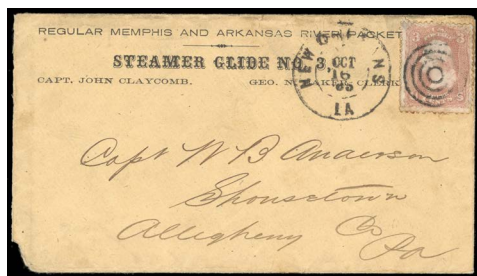 REGULAR MEMPHIS AND ARKANSAS RIVER PACKET
STEAMER GLIDE NO. 3,
CAPT. JOHN CLAYCOMB. GEO. N. CLERK
NEW
OCT
16
65
LA
Capt W B Anderson
Shousetown
Allegheny Co
Pa